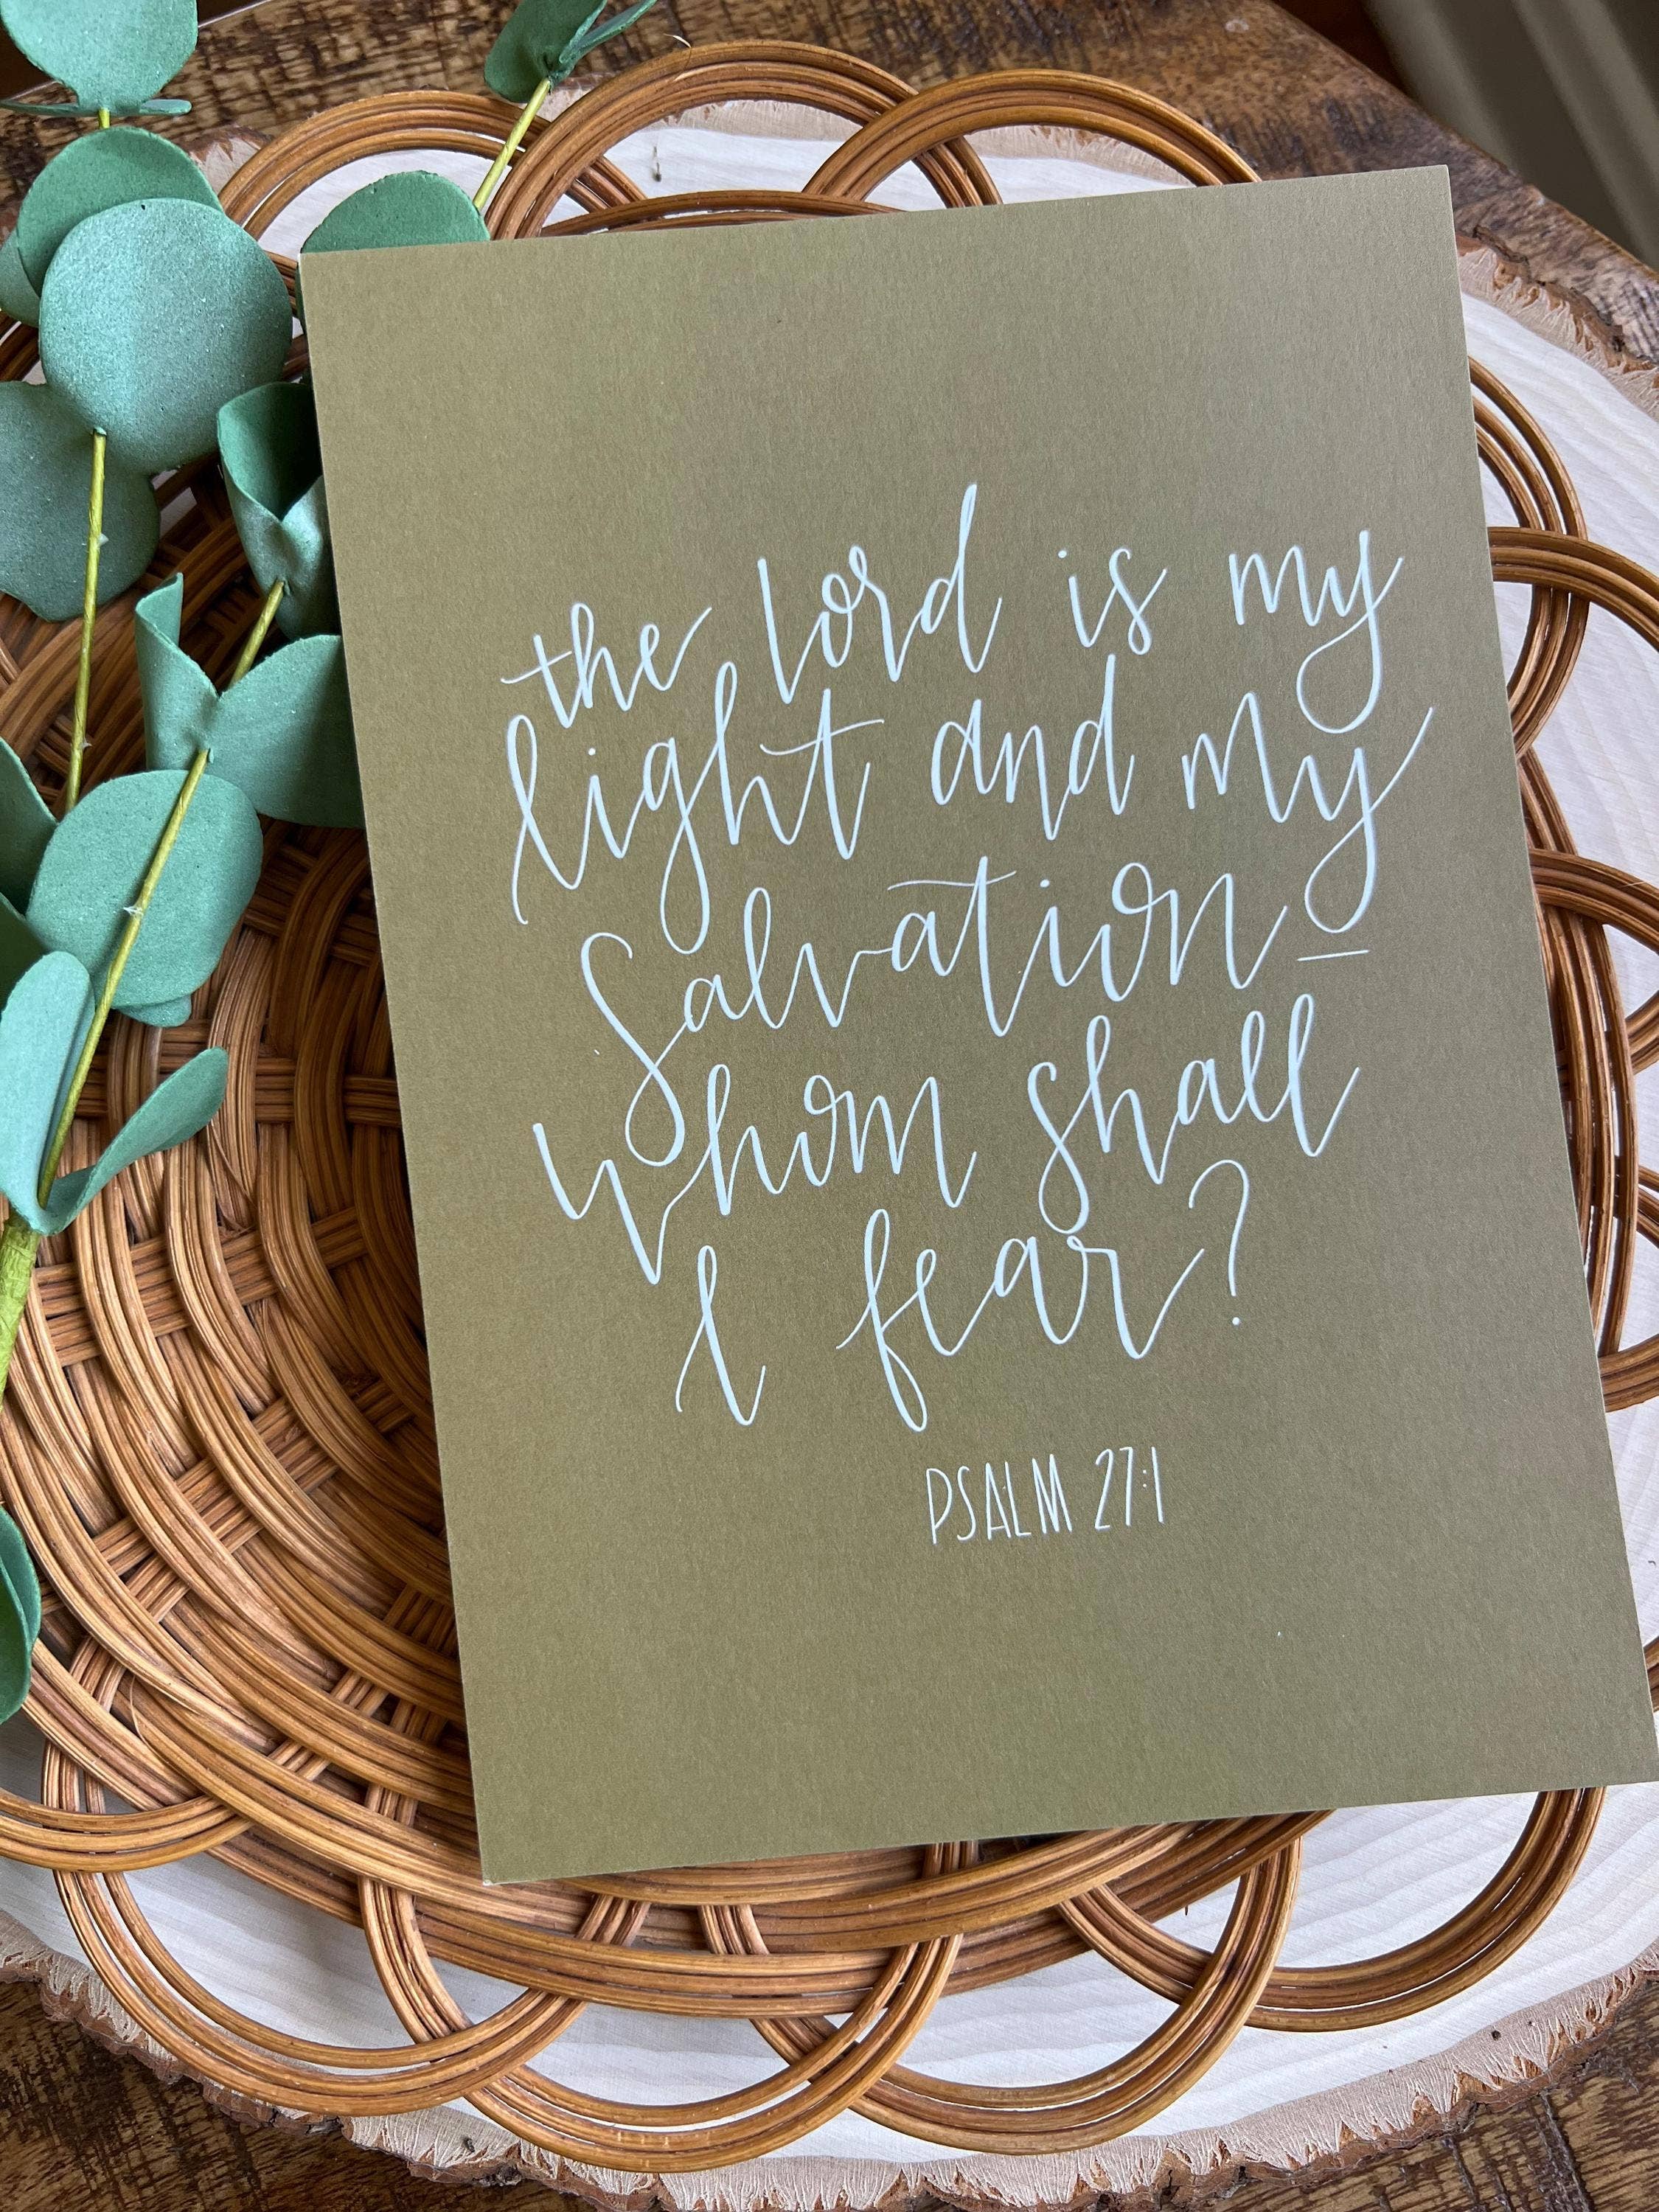 the lord is my
light and my
Salvation –
whom shall
I fear?
PSALM 27:1